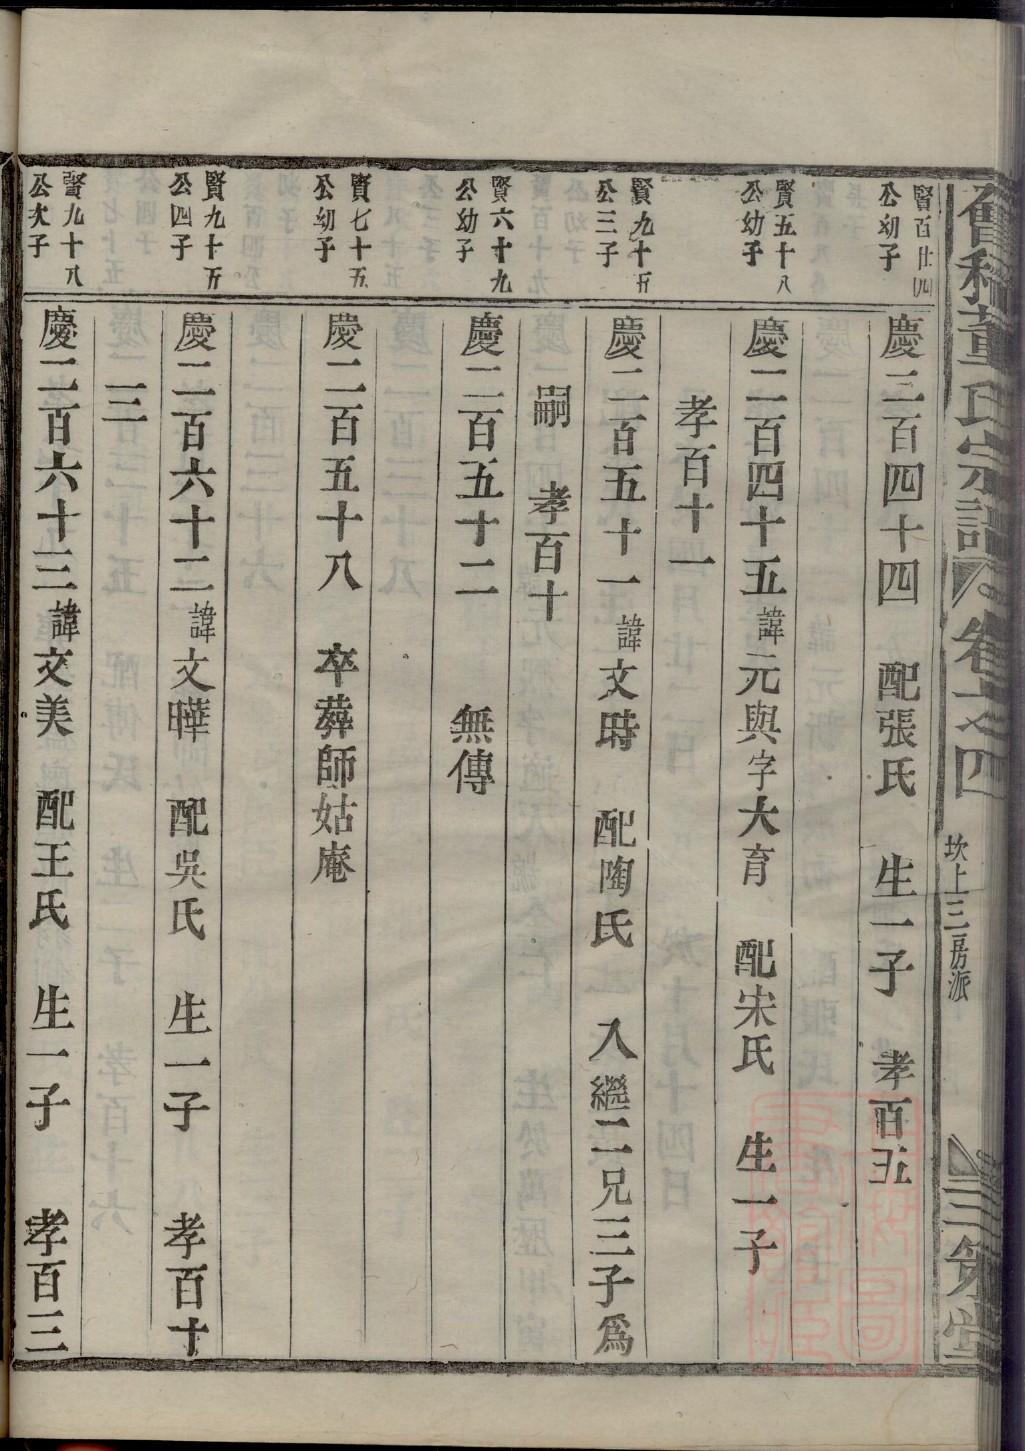 會稽董氏宗譜
卷十之四
坎上三房派
三策堂
賢百廿四
公幼子
慶二百四十四 配張氏 生一子 孝百五
賢五十八
公幼子
慶二百四十五諱元與字大育 配宋氏 生一子
孝百十一
賢九十五
公三子
慶二百五十一諱文時 配陶氏 入繼二兄三子為
嗣 孝百十
賢六十九
公幼子
慶二百五十二 無傳
賢七十五
公幼子
慶二百五十八 卒葬師姑庵
賢九十五
公四子
慶二百六十二諱文曄 配吳氏 生一子 孝百十
三
賢九十八
公次子
慶二百六十三諱文美 配王氏 生一子 孝百三